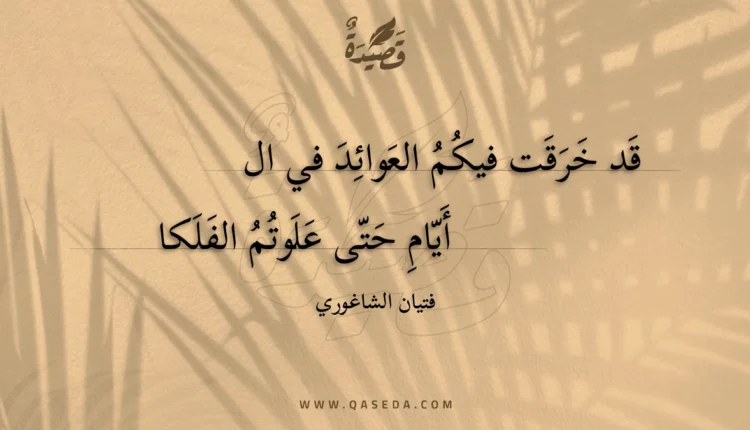 قَصِيدَةٌ
قَد خَرَقَت فيكُمُ العَوائِدَ في ال
أَيّامِ حَتّى عَلَوتُمُ الفَلَكا
فتيان الشاغوري
WWW.QASEDA.COM